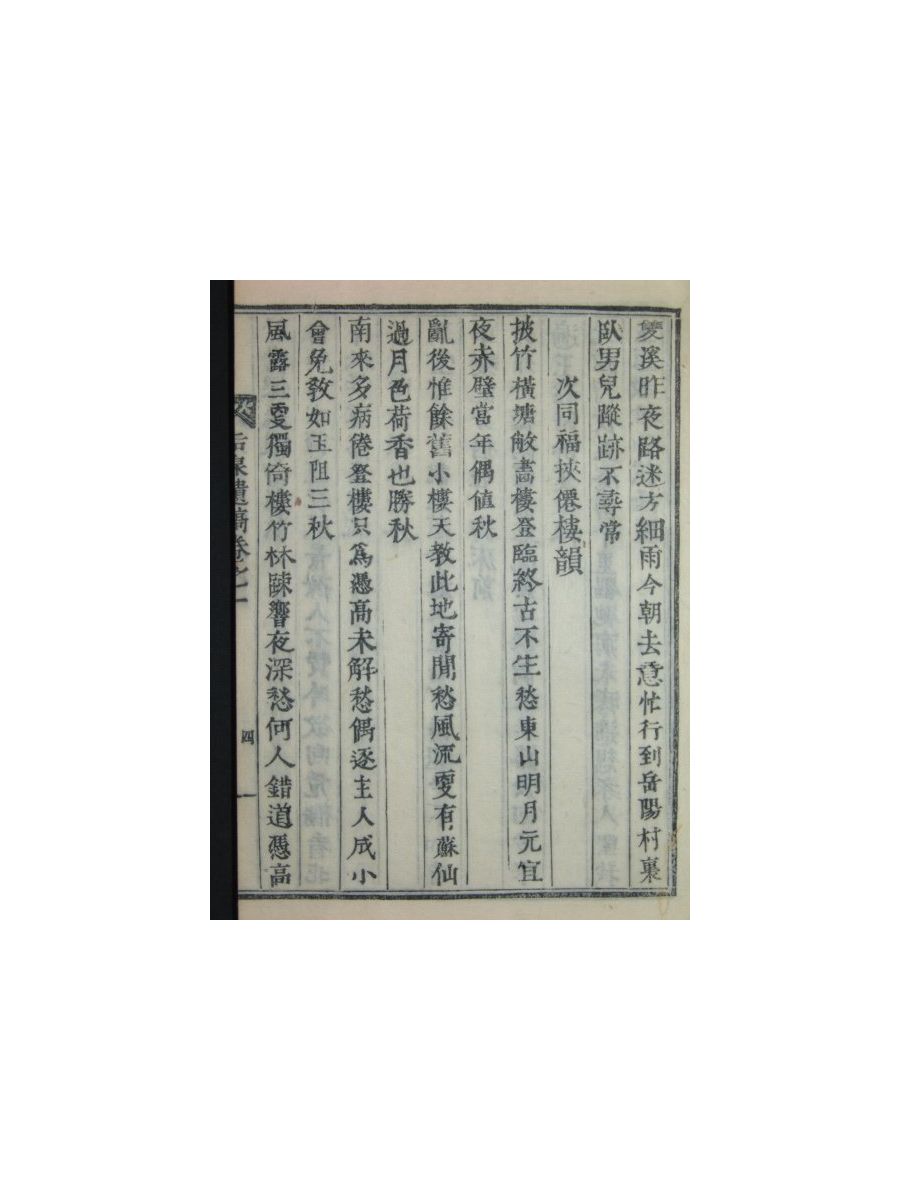 雙溪昨夜路迷方細雨今朝去意忙行到岳陽村裏
臥男兒蹤跡不尋常
次同福挾僊樓韻
披竹橫塘敞畵樓登臨終古不生愁東山明月元宜
夜赤壁當年偶値秋
亂後惟餘舊小樓天敎此地寄閒愁風流更有蘇仙
過月色荷香也勝秋
南來多病倦登樓只爲憑高未解愁偶逐主人成小
會免敎如玉阻三秋
風露三更獨倚樓竹林踈響夜深愁何人錯道憑高
石泉遺稿卷之一
四